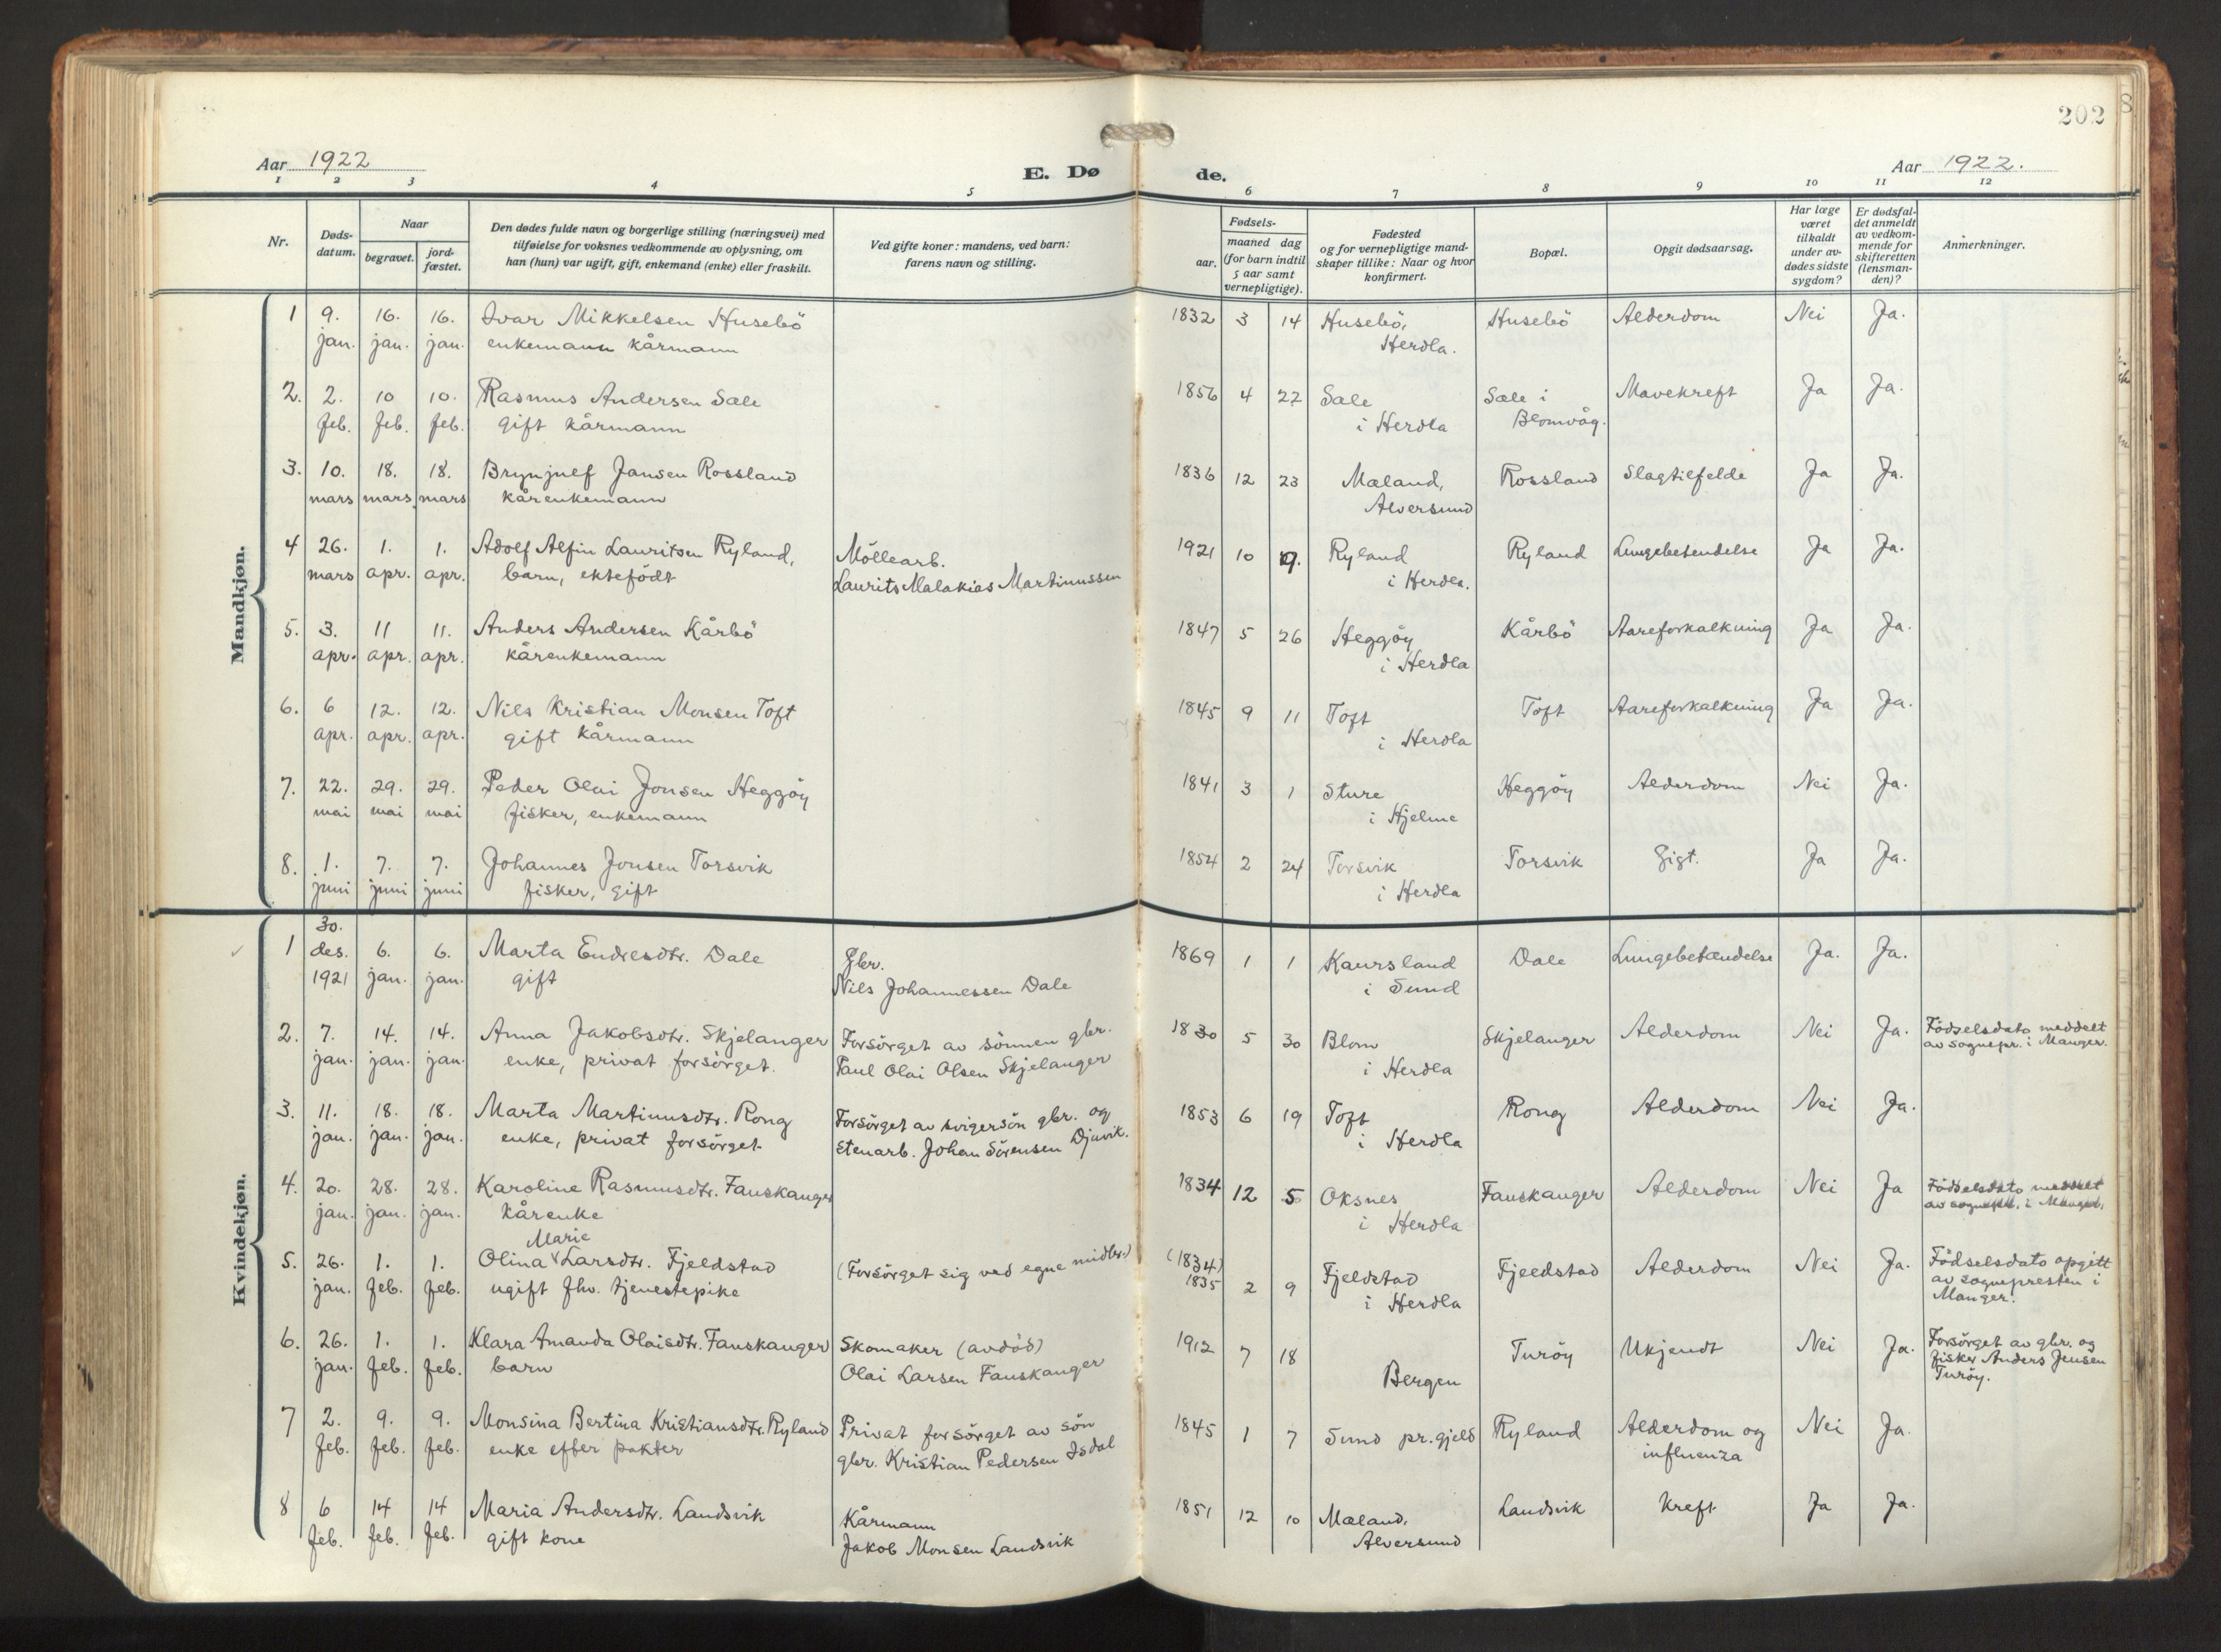 202
8
Aar 1922
E. Dø
de.
Aar 1922.
1 2 3 4 5 6 7 8 9 10 11 12
Nr.
Døds-
datum.
Naar
begravet.
jord-
fæstet.
Den dødes fulde navn og borgerlige stilling (næringsvei) med
tilføielse for voksnes vedkommende av oplysning, om
han (hun) var ugift, gift, enkemand (enke) eller fraskilt.
Ved gifte koner: mandens, ved barn:
farens navn og stilling.
Fødsels-
aar.
maaned dag
(for barn indtil
5 aar samt
vernepligtige).
Fødested
og for vernepligtige mand-
skaper tillike: Naar og hvor
konfirmert.
Bopæl.
Opgit dødsaarsag.
Har læge
været
tilkaldt
under av-
dødes sidste
sygdom?
Er dødsfal-
det anmeldt
av vedkom-
mende for
skifteretten
(lensman-
den)?
Anmerkninger.
Mandkjøn.
1 9. 16. 16. Ivar Mikkelsen Husebö 1832 3 14 Husebö, Husebö Alderdom Nei Ja.
jan. jan. jan. enkemann kårmann Herdla.
2. 2. 10 10. Rasmus Andersen Sæle 1856 4 22 Sæle Sæle i Mavekreft Ja Ja.
feb. feb. feb. gift kårmann i Herdla Blomvåg.
3. 10. 18. 18. Brynjulf Jansen Rossland 1836 12 23 Mæland, Rossland Slagtilfelde Ja Ja.
mars mars mars kårenkemann Alversund
4 26. 1. 1. Adolf Alfin Lauritsen Ryland, Möllearb. 1921 10 9. Ryland Ryland Lungebetendelse Ja Ja.
mars apr. apr. barn, ektefödt Laurits Malakias Martinussen i Herdla.
5. 3. 11 11. Anders Andersen Kårbö 1847 5 26 Heggöy Kårbö Aareforkalkning Ja Ja.
apr. apr. apr. kårenkemann i Herdla
6. 6 12. 12. Nils Kristian Monsen Toft 1845 9 11 Toft Toft Aareforkalkning Ja Ja.
apr. apr. apr. gift kårmann i Herdla
7. 22. 29. 29. Peder Olai Jonsen Heggöy 1841 3 1 Sture Heggöy Alderdom Nei Ja.
mai mai mai fisker, enkemann i Hjelme
8. 1. 7. 7. Johannes Jonsen Torsvik 1854 2 24 Torsvik Torsvik Gigt. Ja Ja.
juni juni juni fisker, gift i Herdla
Kvindekjøn.
30.
1 des. 6. 6. Marta Endresdtr. Dale Gbr. 1869 1 1 Kaursland Dale Lungebetændelse Ja. Ja.
1921 jan. jan. gift Nils Johannessen Dale i Sund
2. 7. 14. 14. Anna Jakobsdtr. Skjelanger Forsörget av sönnen gbr. 1830 5 30 Blom Skjelanger Alderdom Nei Ja. Födselsdato meddelt
jan. jan. jan. enke, privat forsörget. Paul Olai Olsen Skjelanger i Herdla av sognepr. i Manger.
3. 11. 18. 18. Marta Martinusdtr. Rong Forsörget av svigersön gbr. og 1853 6 19 Toft Rong Alderdom Nei Ja.
jan. jan. jan. enke, privat forsörget stenarb. Johan Sörensen Djuvik. i Herdla
4. 20. 28. 28. Karoline Rasmusdtr. Fauskanger 1834 12 5 Oksnes Fauskanger Alderdom Nei Ja Födselsdato meddelt
jan. jan. jan. kårenke i Herdla av sognepr. i Manger.
Marie
5. 26. 1. 1. Olina Larsdtr. Fjeldstad (Forsörget sig ved egne midler.) (1834) 1835 2 9 Fjeldstad Fjeldstad Alderdom Nei Ja. Födselsdato opgitt
jan. feb. feb. ugift fhv. tjenestepike i Herdla av sognepresten i
Manger.
6. 26. 1. 1. Klara Amanda Olaisdtr. Fauskanger Skomaker (avdöd) 1912 7 18 Bergen Turöy Ukjendt Nei Ja. Forsörget av gbr. og
jan. feb. feb. barn Olai Larsen Fauskanger fisker Anders Jensen
Turöy.
7 2. 9. 9. Monsina Bertina Kristiansdtr. Ryland Privat forsörget av sön 1845 1 7 Sund pr.gjeld Ryland Alderdom og Nei Ja.
feb. feb. feb. enke efter pakter gbr. Kristian Pedersen Isdal influenza
8 6 14 14 Maria Andersdtr. Landsvik Kårmann 1851 12 10 Mæland, Landsvik Kreft Ja Ja.
feb. feb. feb. gift kone Jakob Monsen Landsvik Alversund